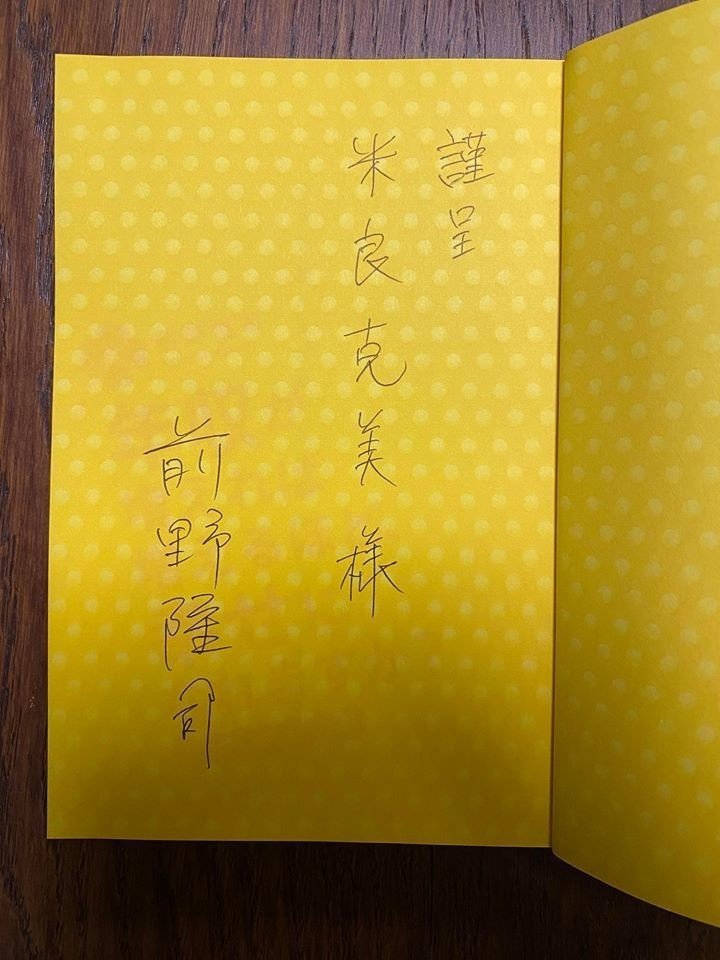 謹呈
米良克美様
前野隆司